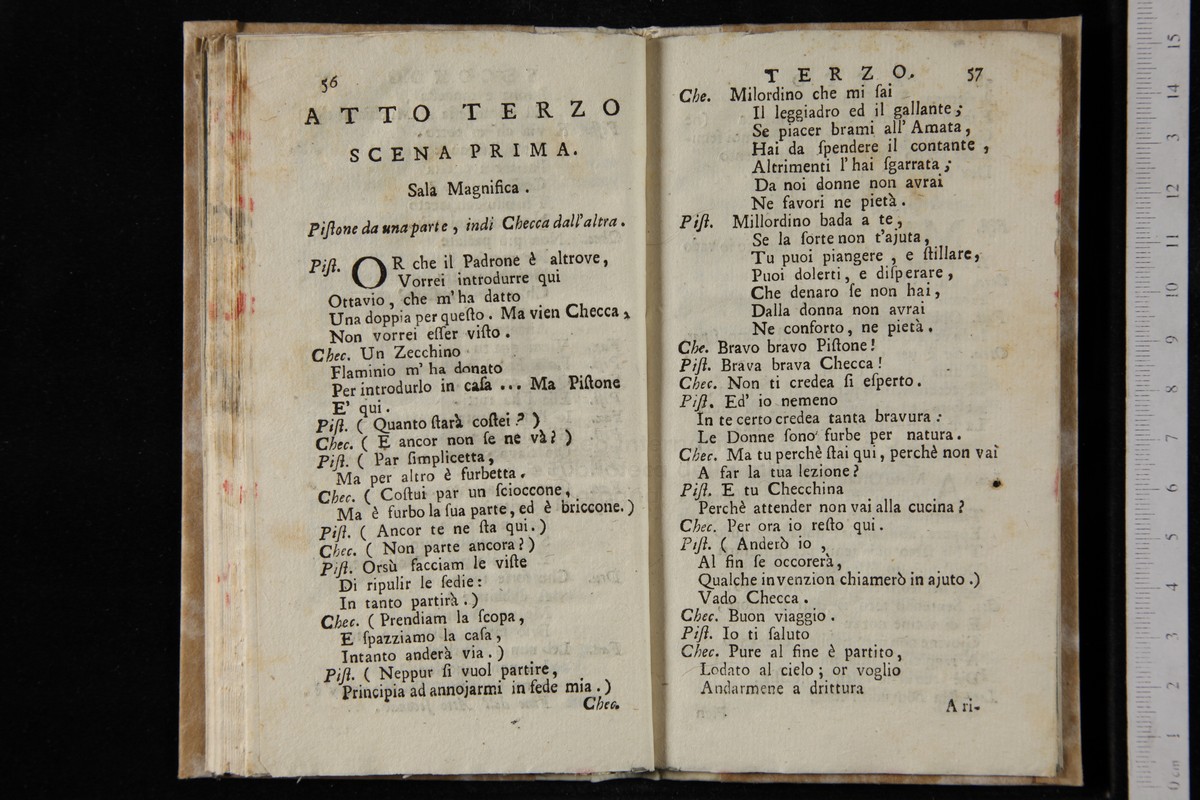 56
ATTO TERZO
SCENA PRIMA.
Sala Magnifica.
Piſtone da una parte, indi Checca dall'altra.
Piſt. OR che il Padrone è altrove,
Vorrei introdurre qui
Ottavio, che m'ha datto
Una doppia per queſto. Ma vien Checca,
Non vorrei eſſer viſto.
Chec. Un Zecchino
Flaminio m'ha donato
Per introdurlo in caſa ... Ma Piſtone
E' qui.
Piſt. ( Quanto ſtarà coſtei? )
Chec. ( E ancor non ſe ne và? )
Piſt. ( Par ſimplicetta,
Ma per altro è furbetta.
Chec. ( Coſtui par un ſcioccone,
Ma è furbo la ſua parte, ed è briccone.)
Piſt. ( Ancor te ne ſta qui.)
Chec. ( Non parte ancora?)
Piſt. Orsù facciam le viſte
Di ripulir le ſedie:
In tanto partirà.)
Chec. (Prendiam la ſcopa,
E ſpazziamo la caſa,
Intanto anderà via.)
Piſt. ( Neppur ſi vuol partire,
Principia ad annojarmi in fede mia.)
Chec.
TERZO. 57
Che. Milordino che mi fai
Il leggiadro ed il gallante;
Se piacer brami all'Amata,
Hai da ſpendere il contante,
Altrimenti l'hai ſgarrata;
Da noi donne non avrai
Ne favori ne pietà.
Piſt. Millordino bada a te,
Se la ſorte non t'ajuta,
Tu puoi piangere, e ſtillare,
Puoi dolerti, e diſperare,
Che denaro ſe non hai,
Dalla donna non avrai
Ne conforto, ne pietà.
Che. Bravo bravo Piſtone!
Piſt. Brava brava Checca!
Chec. Non ti credea ſi eſperto.
Piſt. Ed' io nemeno
In te certo credea tanta bravura:
Le Donne ſono furbe per natura.
Chec. Ma tu perchè ſtai qui, perchè non vai
A far la tua lezione?
Piſt. E tu Checchina
Perchè attender non vai alla cucina?
Chec. Per ora io reſto qui.
Piſt. ( Anderò io,
Al fin ſe occorerà,
Qualche invenzion chiamerò in ajuto.)
Vado Checca.
Chec. Buon viaggio.
Piſt. Io ti ſaluto
Chec. Pure al fine è partito,
Lodato al cielo; or voglio
Andarmene a drittura
A ri-
15
14
13
12
11
10
9
8
7
6
5
4
3
2
1
0 cm